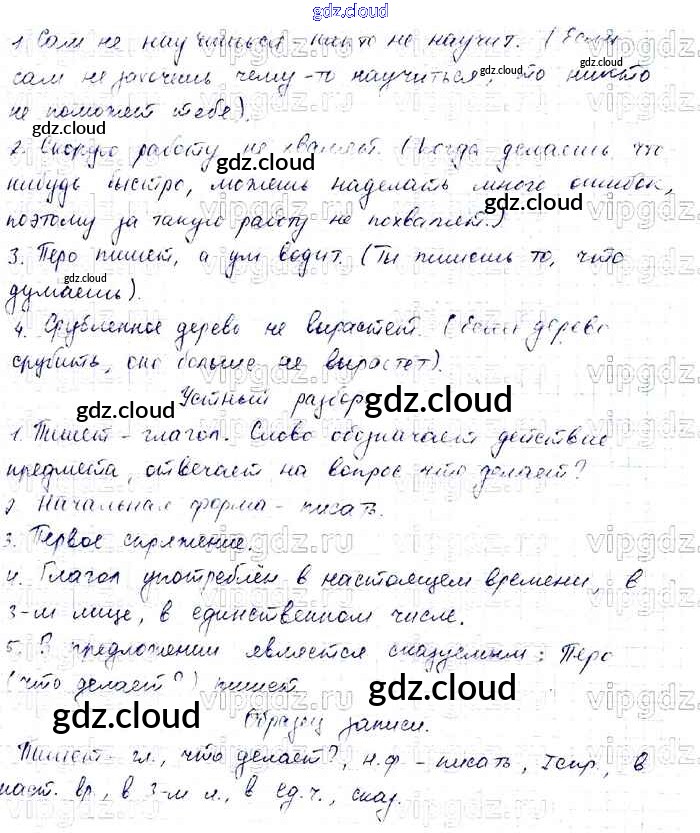 gdz.cloud
1. Сам не научишься, никто не научит. (Если
сам не захочешь чему-то научиться, то никто
не поможет тебе).
2. Скорую работу не хвалят. (Когда делаешь что
нибудь быстро, можешь наделать много ошибок,
поэтому за такую работу не похвалят.)
3. Перо пишет, а ум водит. (Ты пишешь то, что
думаешь).
4. Срубленное дерево не вырастет. (Если дерево
срубить, оно больше не вырастет).
Устный разбор
1. Пишет - глагол. Слово обозначает действие
предмета, отвечает на вопрос что делает?
2. Начальная форма - писать.
3. Первое спряжение.
4. Глагол употреблён в настоящем времени, в
3-м лице, в единственном числе.
5. В предложении является сказуемым: Перо
(что делает?) пишет
Образец записи.
Пишет - гл., что делает?, н.ф - писать, I спр., в
наст. вр., в 3-м л., в ед.ч., сказ.